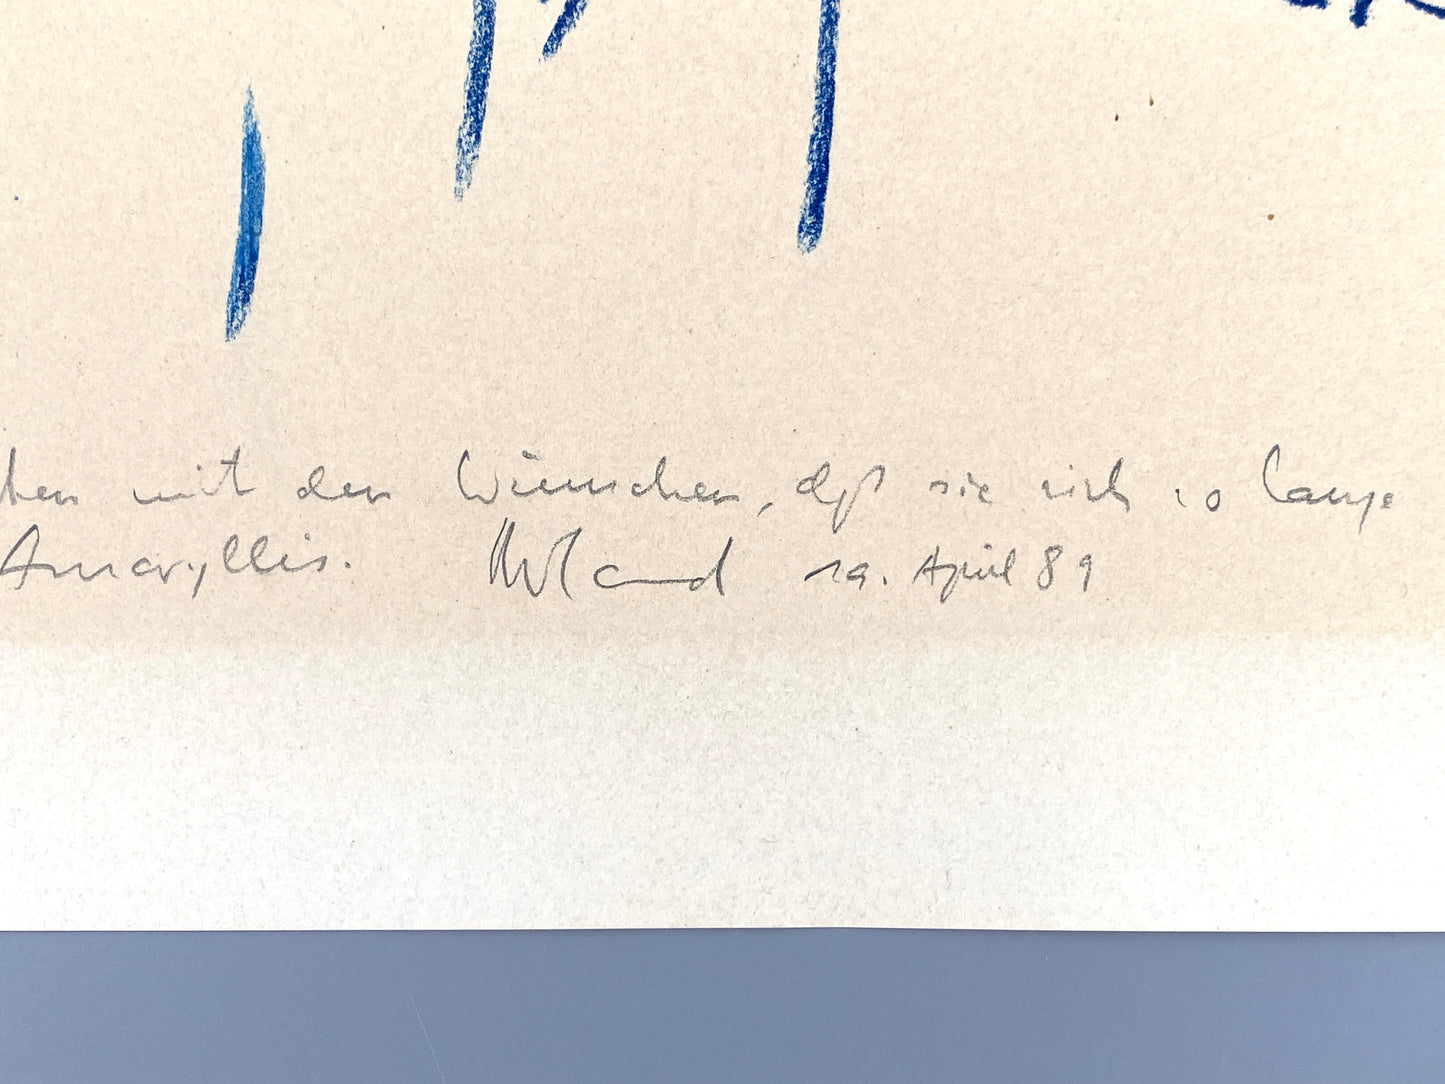 mit den Wünschen, daß sie sich so lange
Amaryllis. Roland 19. April 89